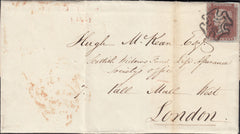 Hugh McKean Esqr
Scottish Widows Fund Life Assurance
Society's Office
Pall Mall West
London.